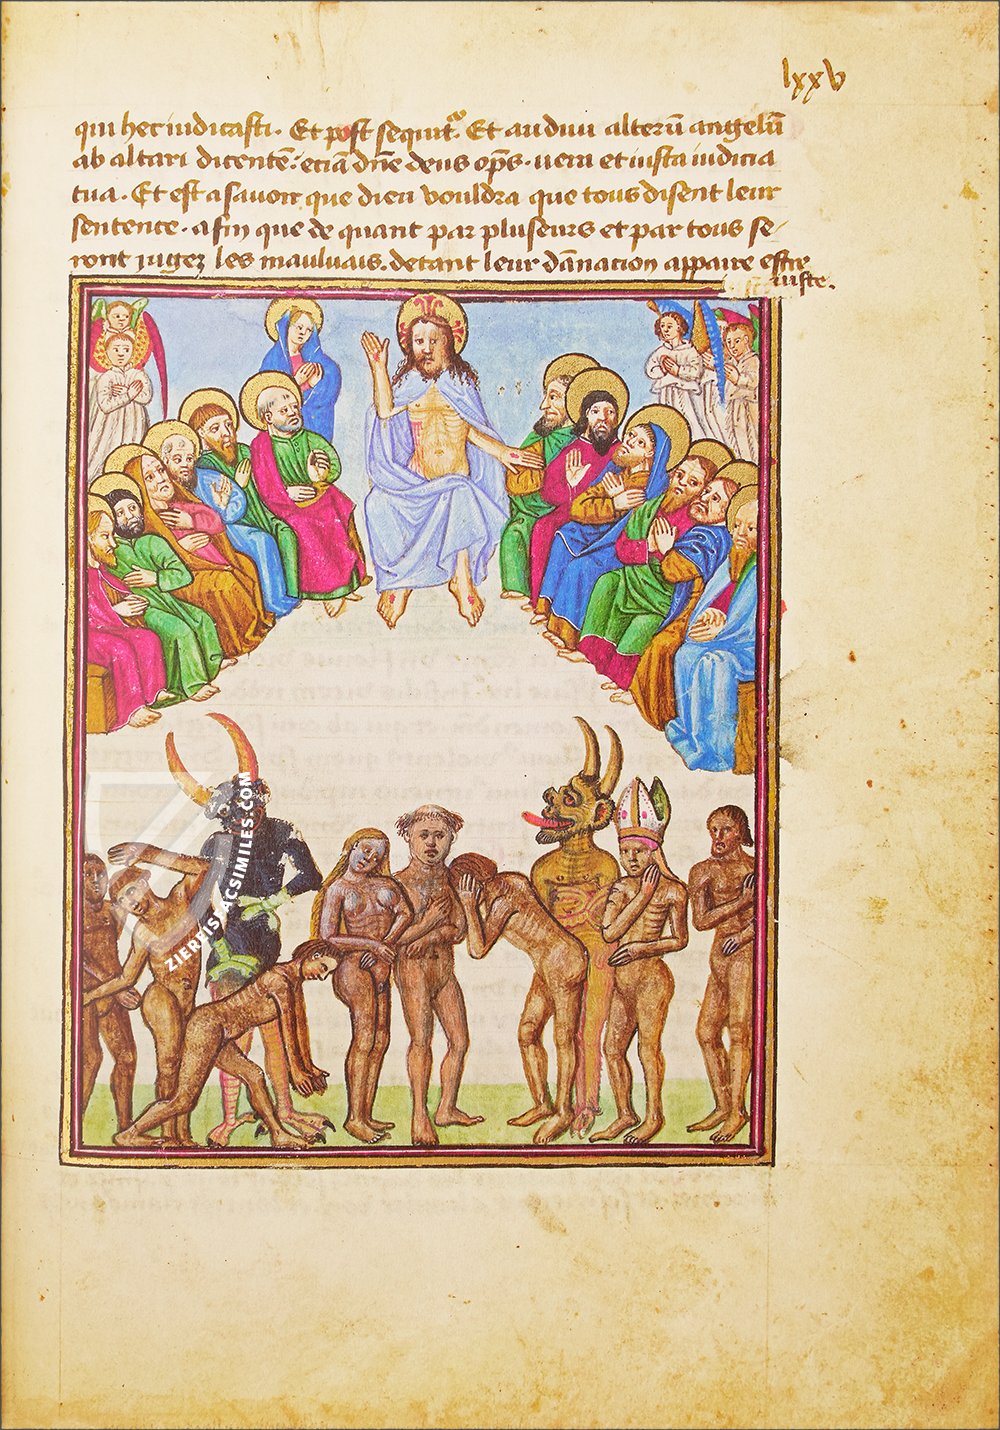 lxxv
qui hec iudicasti. Et post sequit᷑. Et audiui alterū angelū
ab altari dicentē: eciā dn̄e deus op̄s. uera et iusta iudicia
tua. Et est a sauoir que dieu vouldra que tous disent leur
sentence. afin que de quant par pluseurs et par tous se-
ront jugez les mauluais. de tant leur dānacion appaire estre
iuste.
ZIEREISFACSIMILES.COM